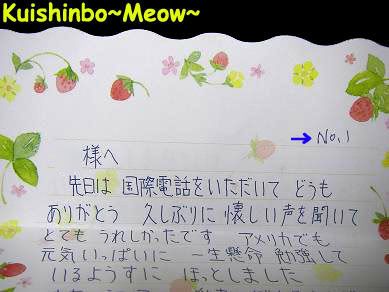 Kuishinbo~Meow~
No.1
様へ
先日は 国際電話をいただいて どうも
ありがとう 久しぶりに 懐しい声を聞いて
とても うれしかったです アメリカでも
元気いっぱいに 一生懸命 勉強して
いるようすに ほっとしました